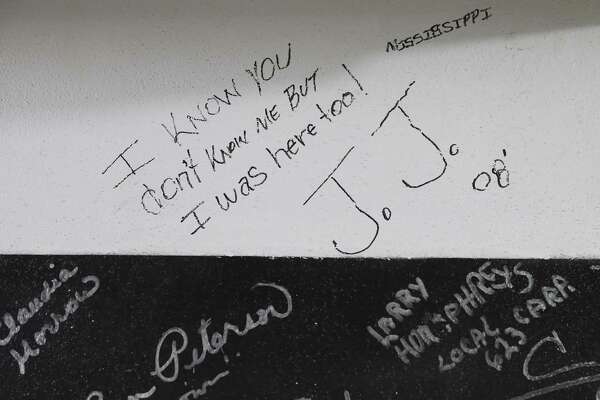 MISSISSIPPI
I KNOW YOU
don't KNOW ME BUT
I was here too!
J. J.
08'
Claudia
Morrow
Peterson
LARRY
HUMPHREYS
LOCAL CARP.
623